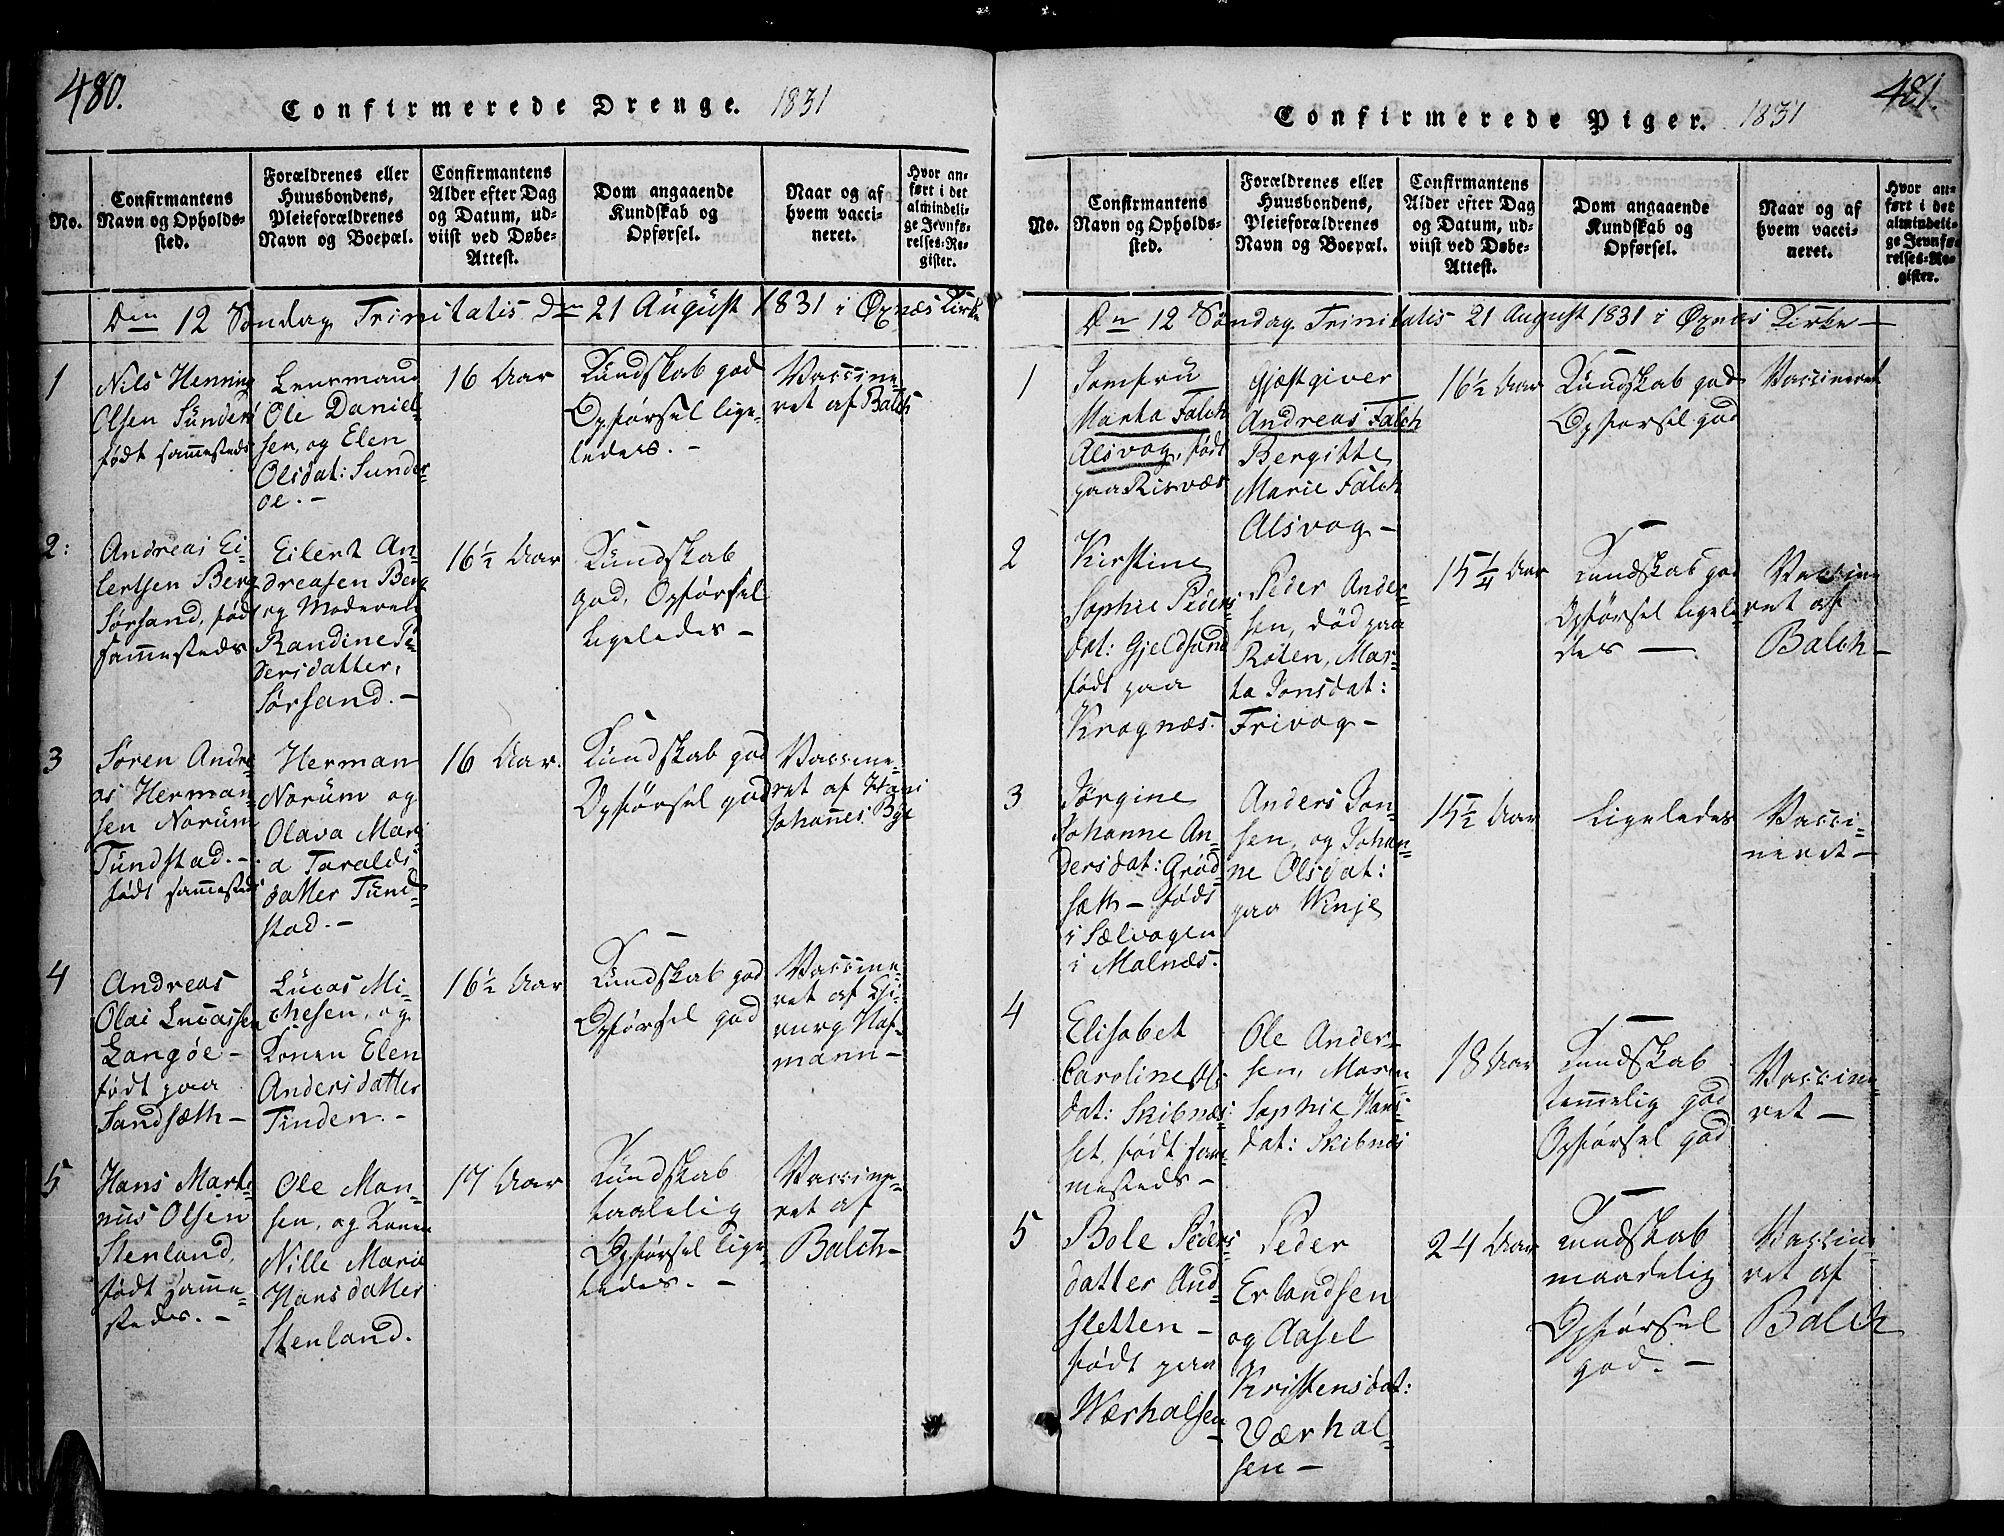 480.
Confirmerede Drenge. 1831
No.
Confirmantens
Navn og Opholds-
sted.
Forældrenes eller
Huusbondens,
Pleieforældrenes
Navn og Boepæl.
Confirmantens
Alder efter Dag
og Datum, ud-
viist ved Døbe-
Attest.
Dom angaaende
Kundskab og
Opførsel.
Naar og af
hvem vacci-
neret.
Hvor an-
ført i det
almindeli-
ge Jevnfø-
relses-Re-
gister.
Den 12 Søndag Trinitatis Dn 21 August 1831 i Øxnes Kirke
1
Nils Henning
Olsen Sunderö
født sammesteds
Lensmand
Ole Daniel-
sen, og Elen
Olsdat: Sunder-
øe. -
16 Aar
Kundskab god
Opførsel lige-
ledes. -
Vaccine-
ret af Balch
2:
Andreas Ei-
lertsen Berg
Sørsand, født
sammesteds
Eilert An-
dreasen Berg
og Moderen
Randine Pe-
dersdatter,
Sørsand. -
16½ Aar
Kundskab
god, Opførsel
ligeledes -
3
Søren Andre-
as Herman-
sen Norum
Tundstad. -
født sammesteds
Herman
Norum og
Olava Mari-
a Taralds-
datter Tund-
stad. -
16 Aar.
Kundskab god
Opførsel god
Vaccine-
ret af Hans
Johannes: Bye
4
Andreas
Olai Lucassen
Langøe -
født paa
Sandsæth -
Lucas Mi-
chesen, og
Konen Elen
Andersdatter
Tinden. -
16½ Aar
Kundskab god
Opførsel god
Vaccine-
ret af Chi-
rurg Haf-
mann -
5
Hans Marti-
nus Olsen
Stenland,
født samme-
stedes. -
Ole Mon-
sen, og Konen
Nille Maria
Hansdatter
Stenland.
17 Aar
Kundskab
taalelig
Opførsel lige-
ledes. -
Vaccine-
ret af
Balch -
481.
Confirmerede Piger. 1831
No.
Confirmantens
Navn og Opholds-
sted.
Forældrenes eller
Huusbondens,
Pleieforældrenes
Navn og Boepæl.
Confirmantens
Alder efter Dag
og Datum, ud-
viist ved Døbe-
Attest.
Dom angaaende
Kundskab og
Opførsel.
Naar og af
hvem vacci-
neret.
Hvor an-
ført i det
almindeli-
ge Jevnfø-
relses-Re-
gister.
Dn 12 Søndag Trinitatis 21 August 1831 i Øxnes Kirke -
1
Jomfru
Marta Falch
Alsvog, født
paa Risvær
Gjæstgiver
Andreas Falch
Bergitte
Marie Falch
Alsvog -
16½ Aar
Kundskab god
Opførsel god
Vaccineret
2
Kirstine
Sophie Peders-
dat: Gjeldsund
født paa
Kragnæs.
Peder Ander-
sen, død paa
Roten, Mar-
ta Jonsdat:
Frivog -
15¼ Aar
Kundskab god
Opførsel ligele-
des -
Vaccine-
ret af
Balch -
3
Jørgine
Johanne An-
dersdat: Grød-
sæth - født
i Sælvogen
i Malnæs.
Anders Jon-
sen, og Johan-
ne Olsdat:
paa Winje
15½ Aar
Ligeledes
Vacci-
neret -
4
Elisabet
Caroline Ols-
dat: Skibnæs-
set, født sam-
mesteds -
Ole Ander-
sen, Maren
Sophie Hans-
dat: Skibnes
18 Aar
Kundskab
temmelig god
Opførsel god
Vaccine-
ret -
5
Bole Peders-
datter And-
sletten -
født paa
Værhalsen -
Peder
Erlandsen
og Aasel
Kristensdat:
Værhal-
sen -
24 Aar
Kundskab
maadelig
Opførsel
god. -
Vaccine-
ret af
Balch